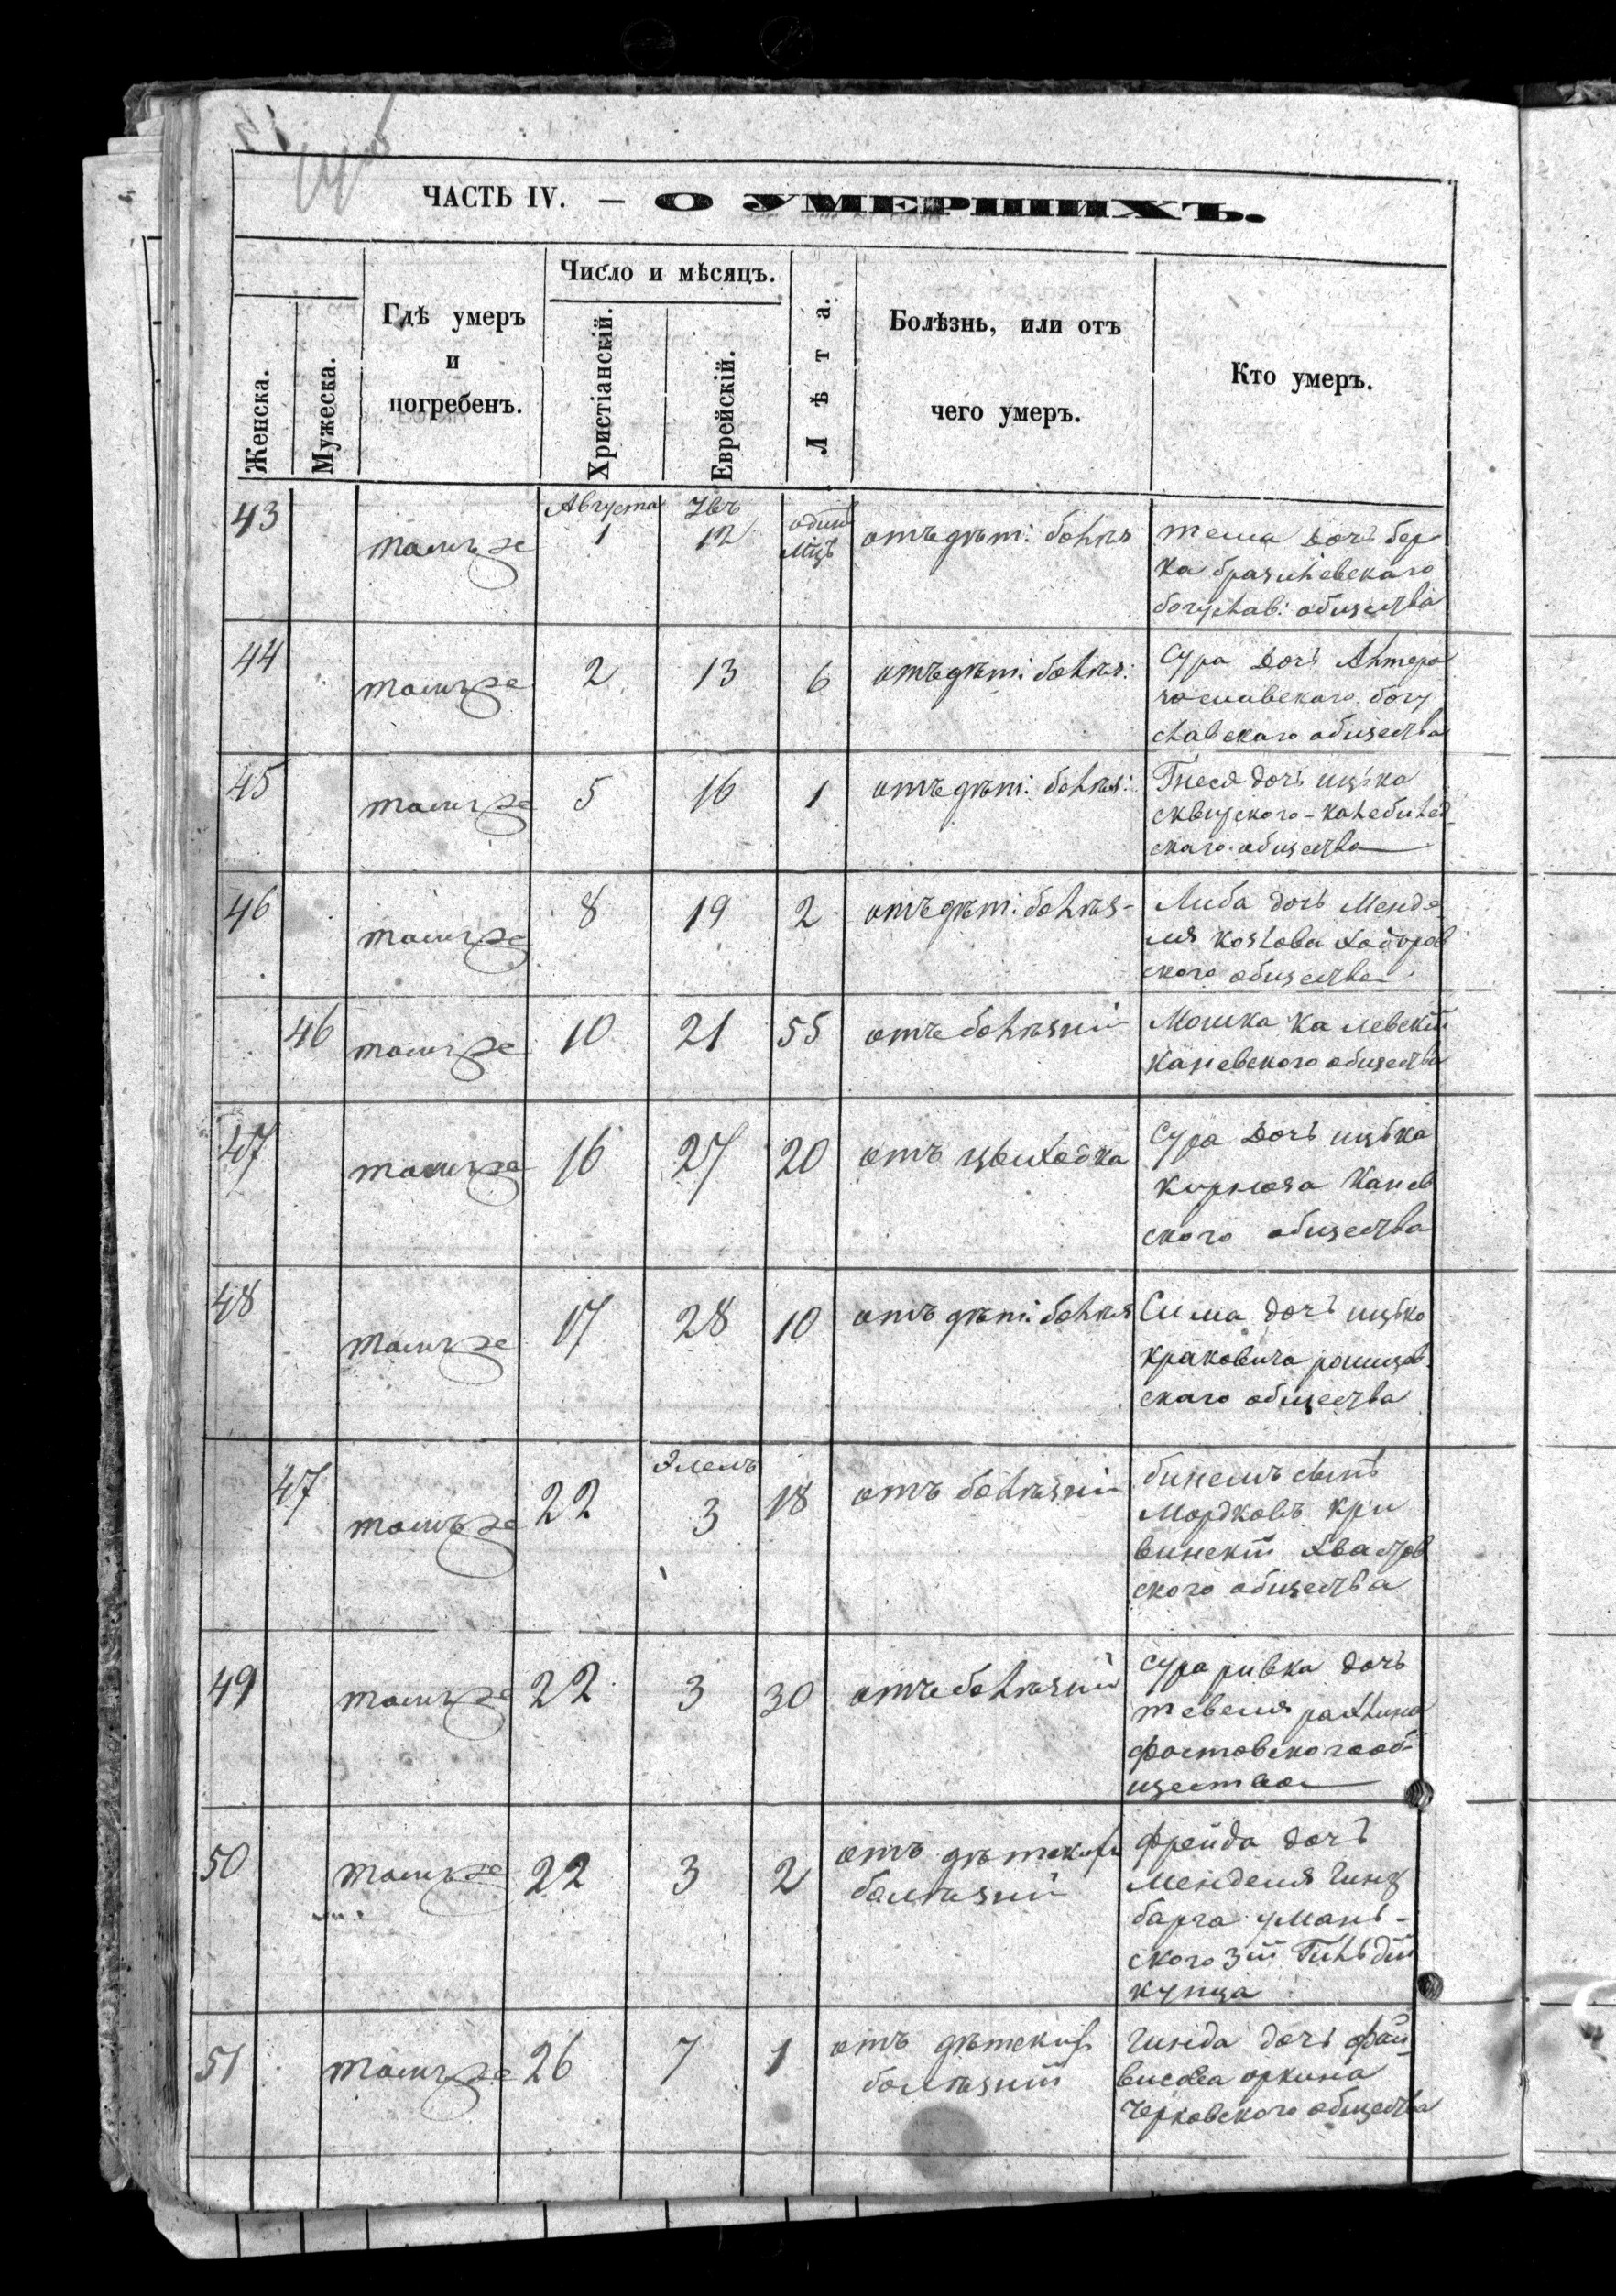 ЧАСТЬ IV. — О УМЕРШИХЪ.
Женска.
Мужеска.
Гдѣ умеръ
и
погребенъ.
Число и мѣсяцъ.
Христіанскій.
Еврейскій.
Лѣта.
Болѣзнь, или отъ
чего умеръ.
Кто умеръ.
Августа
43 тамъ же 1 12 одинъ мцъ отъ дѣт: болѣз
дочь Бер
ка
богуслав: общества
44 тамъ же 2 13 6 отъ дѣт: болѣз:
Сура дочь
богу
славскаго общества
45 тамъ же 5 16 1 отъ дѣт: болѣз:
Гнеся дочь ицька
сквирского
скаго общества
46 тамъ же 8 19 2 отъ дѣт: болѣз-
Либа дочь Менде
ля Козлова ходоров
ского общества
46 тамъ же 10 21 55 отъ болѣзни
Мошка
Каневского общества
47 тамъ же 16 27 20 отъ
Сура дочь ицька
Канев
ского общества
48 тамъ же 17 28 10 отъ дѣт: болѣз
Сима дочь ицько
краковича
скаго общества
Элелъ
47 тамъ же 22 3 18 отъ болѣзни
сынъ
Мордковъ Кри
винскій Хвастов
ского общества
49 тамъ же 22 3 30 отъ болѣзній
Сура ривка дочь
тевеля рахлина
фастовского об-
щества
50 тамъ же 22 3 2 отъ дѣтской
болѣзни
Фрейда дочь
Менделя Гинз
барга умань-
ского 3й Гильдій
купца
51 тамъ же 26 7 1 отъ дѣтской
болѣзній
Гинда дочь Фай
оркина
общества